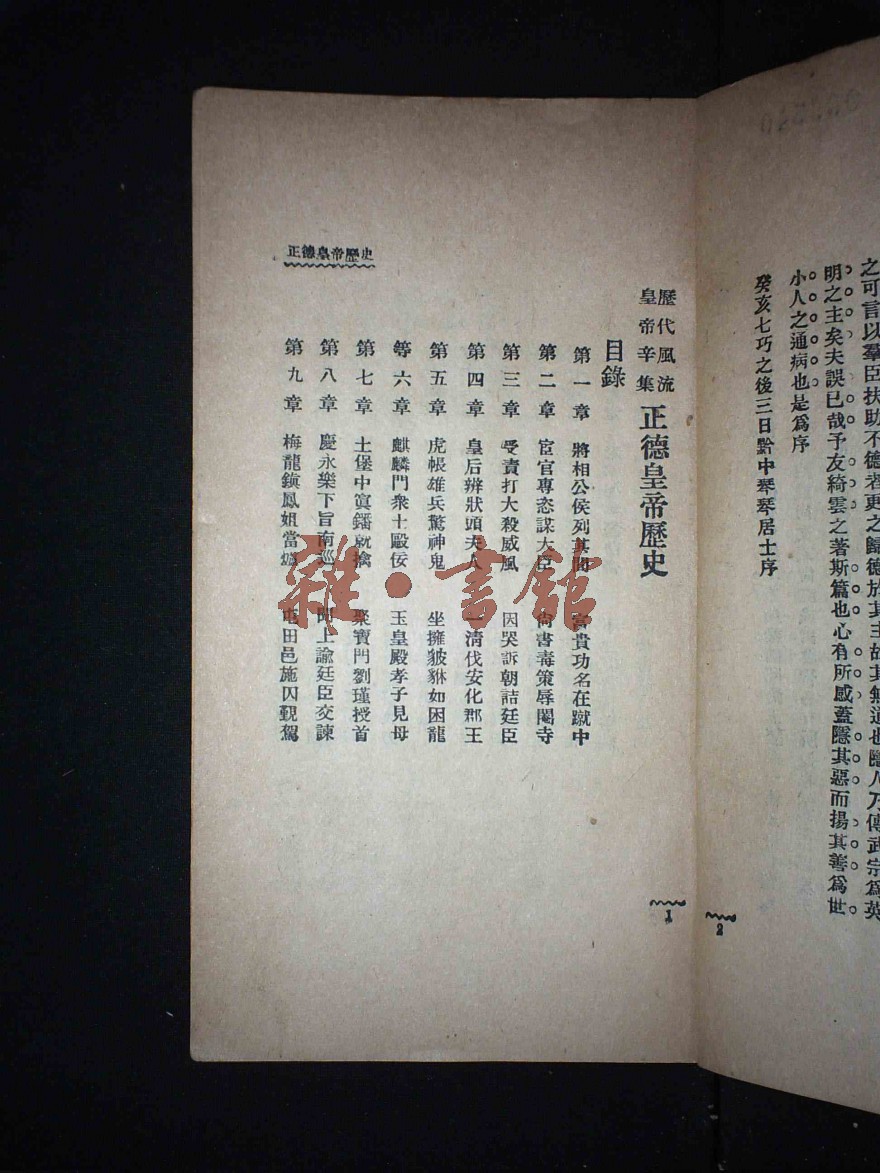 之可言以羣臣扶助不德者更之歸德於其主故其無道也隱人乃傳武宗為英
明之主矣夫誤已哉予友綺雲之著斯篇也心有所感蓋隱其惡而揚其善為世
小人之通病也是為序
癸亥七巧之後三日黔中琴琴居士序
2
歷代風流
皇帝辛集
正德皇帝歷史
目錄
第一章 將相公侯列其間 富貴功名在蹴中
第二章 宦官專恣謀大臣 尚書毒策辱閹寺
第三章 受責打大殺威風 因哭訴朝詰廷臣
第四章 皇后辨狀頭夫人 一清伐安化郡王
第五章 虎帳雄兵驚神鬼 坐擁貔貅如困龍
等六章 麒麟門衆士毆佞 玉皇殿孝子見母
第七章 土堡中寘鐇就擒 聚寶門劉瑾授首
第八章 慶永樂下旨南巡 上諭廷臣交諫
第九章 梅龍鎮鳳姐當爐 屯田邑施囚覲駕
正德皇帝歷史
1
雜·書館